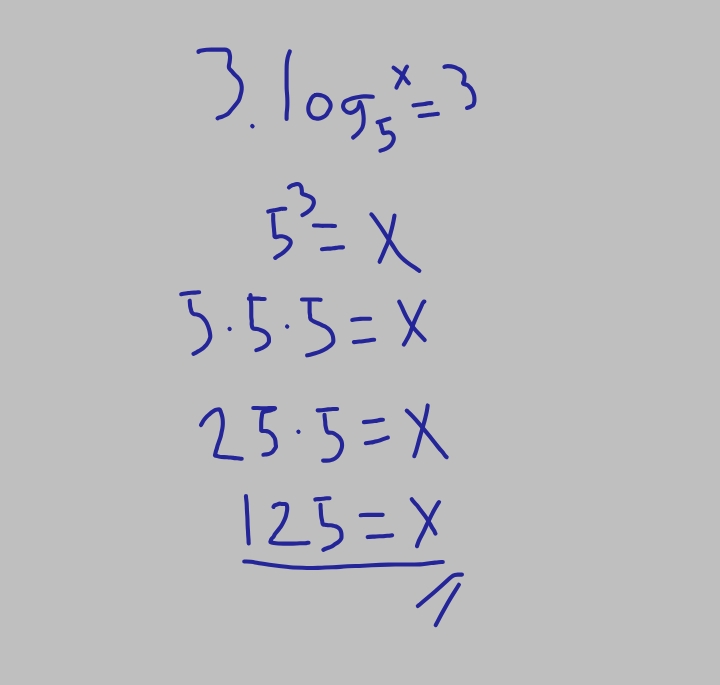 3. log₅ˣ = 3
5³ = X
5·5·5 = X
25·5 = X
125 = X